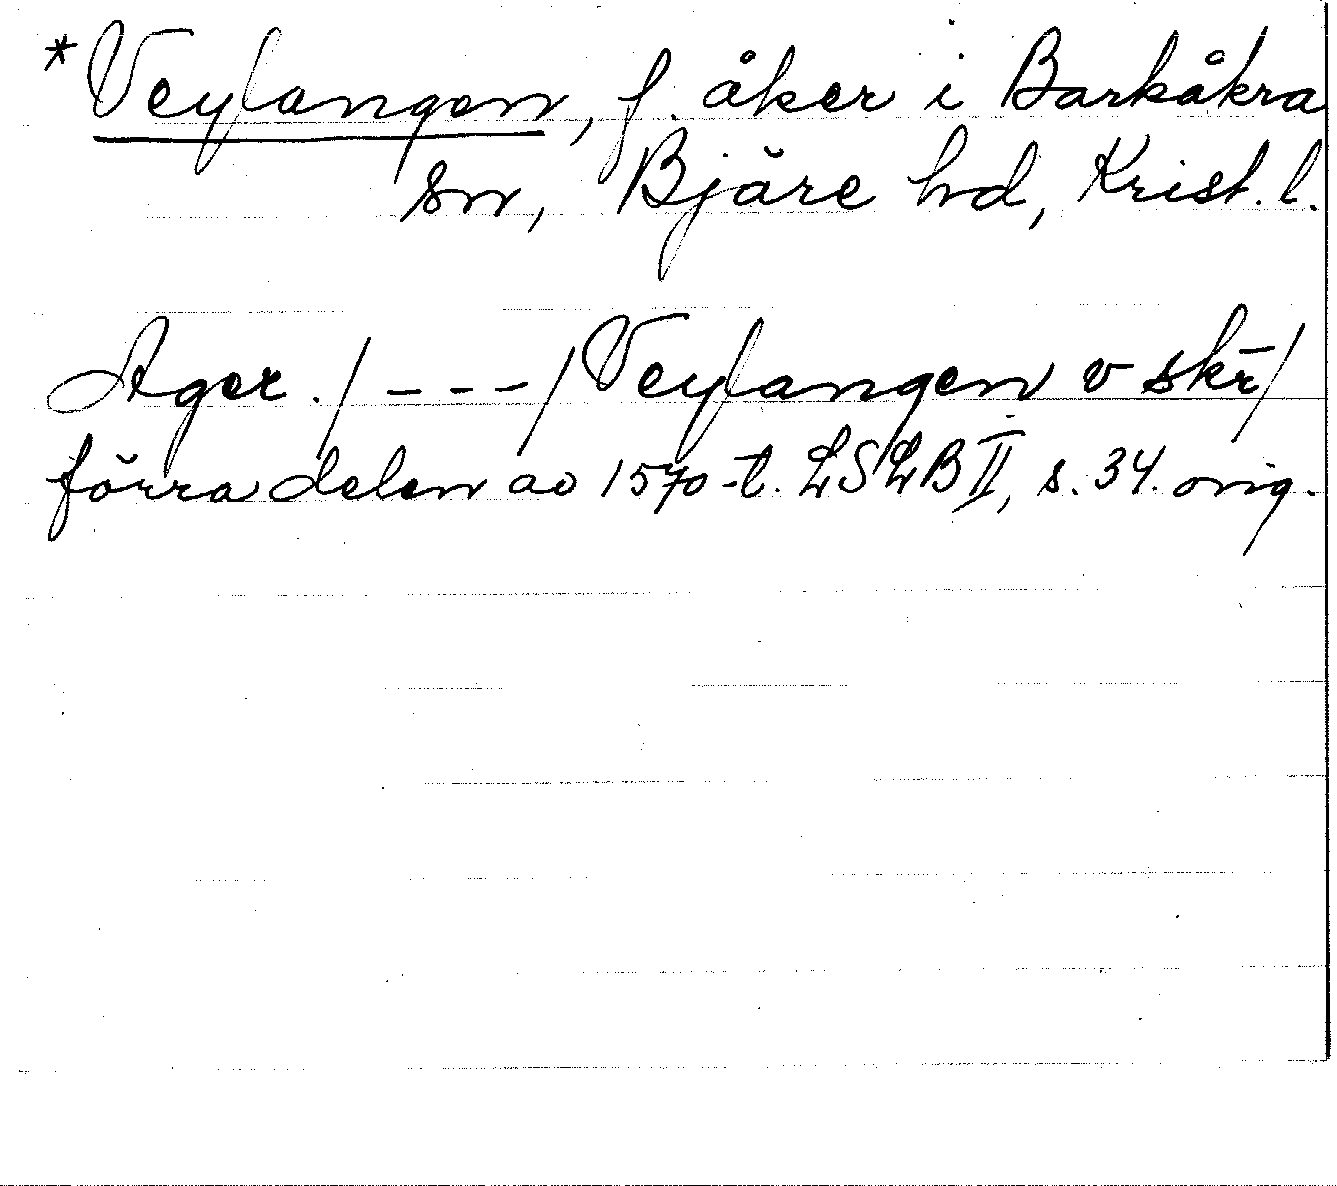 *Veylangen, f. åker i Barkåkra
sn, Bjäre hd, Krist. l.
Ager. /---/ Veylangen v skr̄/
förra delen av 1570-t. LSLB II, s. 34. orig.